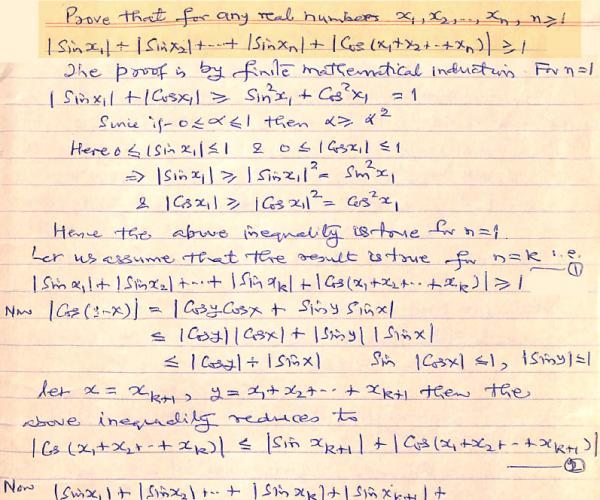 Prove that for any real numbers x₁, x₂, ..., xₙ, n≥1
|Sin x₁| + |Sin x₂| + --- + |Sin xₙ| + |Cos (x₁+x₂+--+xₙ)| ≥ 1
The proof is by finite mathematical induction. For n=1
|Sin x₁| + |Cos x₁| ≥ Sin²x₁ + Cos²x₁ = 1
Since if 0≤α≤1 then α ≥ α²
Here 0 ≤ |Sin x₁| ≤ 1 & 0 ≤ |Cos x₁| ≤ 1
⇒ |Sin x₁| ≥ |Sin x₁|² = Sin²x₁
& |Cos x₁| ≥ |Cos x₁|² = Cos²x₁
Hence the above inequality is true for n=1.
Let us assume that the result is true for n=k i.e.
|Sin x₁| + |Sin x₂| + --- + |Sin xₖ| + |Cos (x₁+x₂+--+xₖ)| ≥ 1 —①
Now |Cos (y-x)| = |Cos y Cos x + Sin y Sin x|
≤ |Cos y| |Cos x| + |Sin y| |Sin x|
≤ |Cos y| + |Sin x| Sin |Cos x| ≤ 1, |Sin y| ≤ 1
Let x = xₖ₊₁, y = x₁+x₂+--+xₖ₊₁ then the
above inequality reduces to
|Cos (x₁+x₂+--+xₖ)| ≤ |Sin xₖ₊₁| + |Cos (x₁+x₂+--+xₖ₊₁)| —②
Now |Sin x₁| + |Sin x₂| + --- + |Sin xₖ| + |Sin xₖ₊₁| +